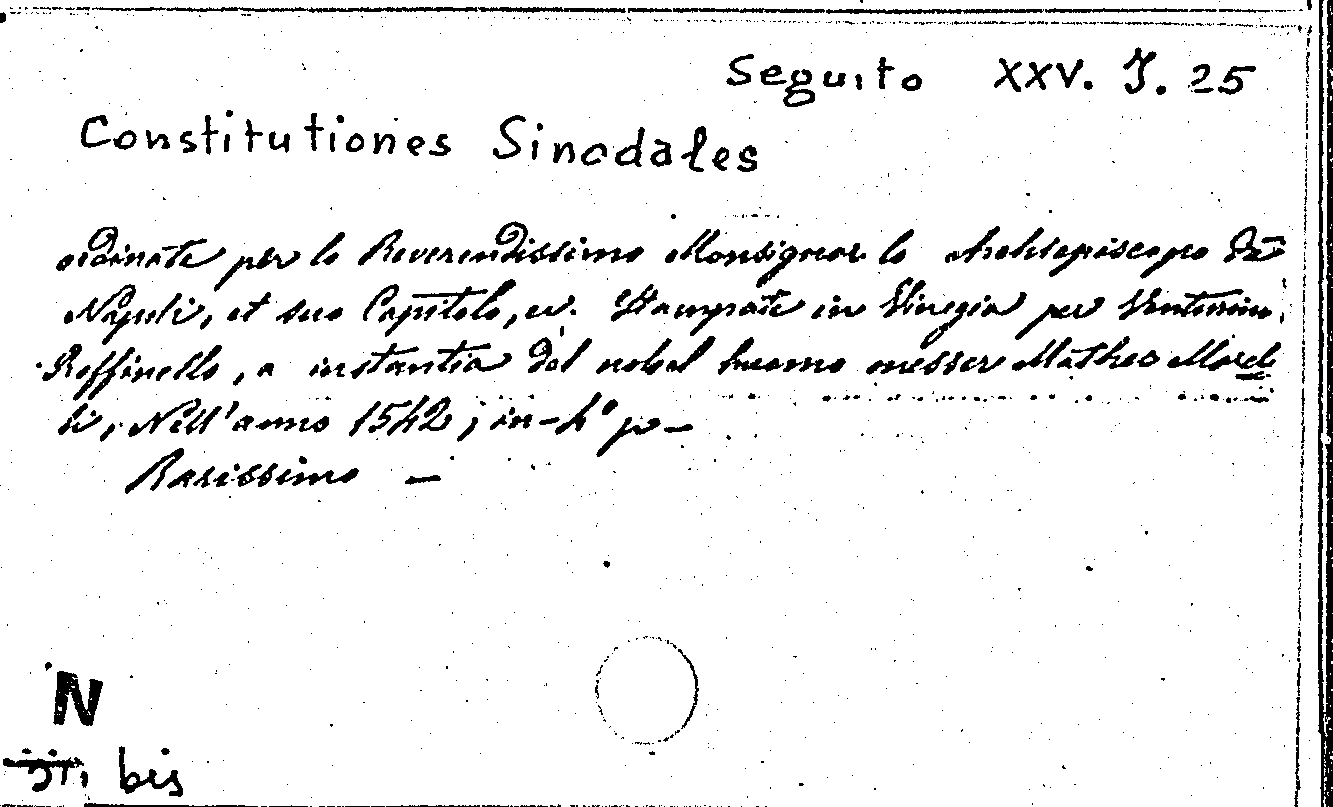 Seguito XXV. J. 25
Constitutiones Sinodales
ordinate per lo Reverendissimo Monsignor lo Archiepiscopo de
Napoli, et suo Capitolo, ec. Stampate in Vinegia per Venturino
Roffinello, a instantia del nobel huomo messer Matheo Morel
li, Nell'anno 1542, in-4° p–
Rarissimo –
N
bis